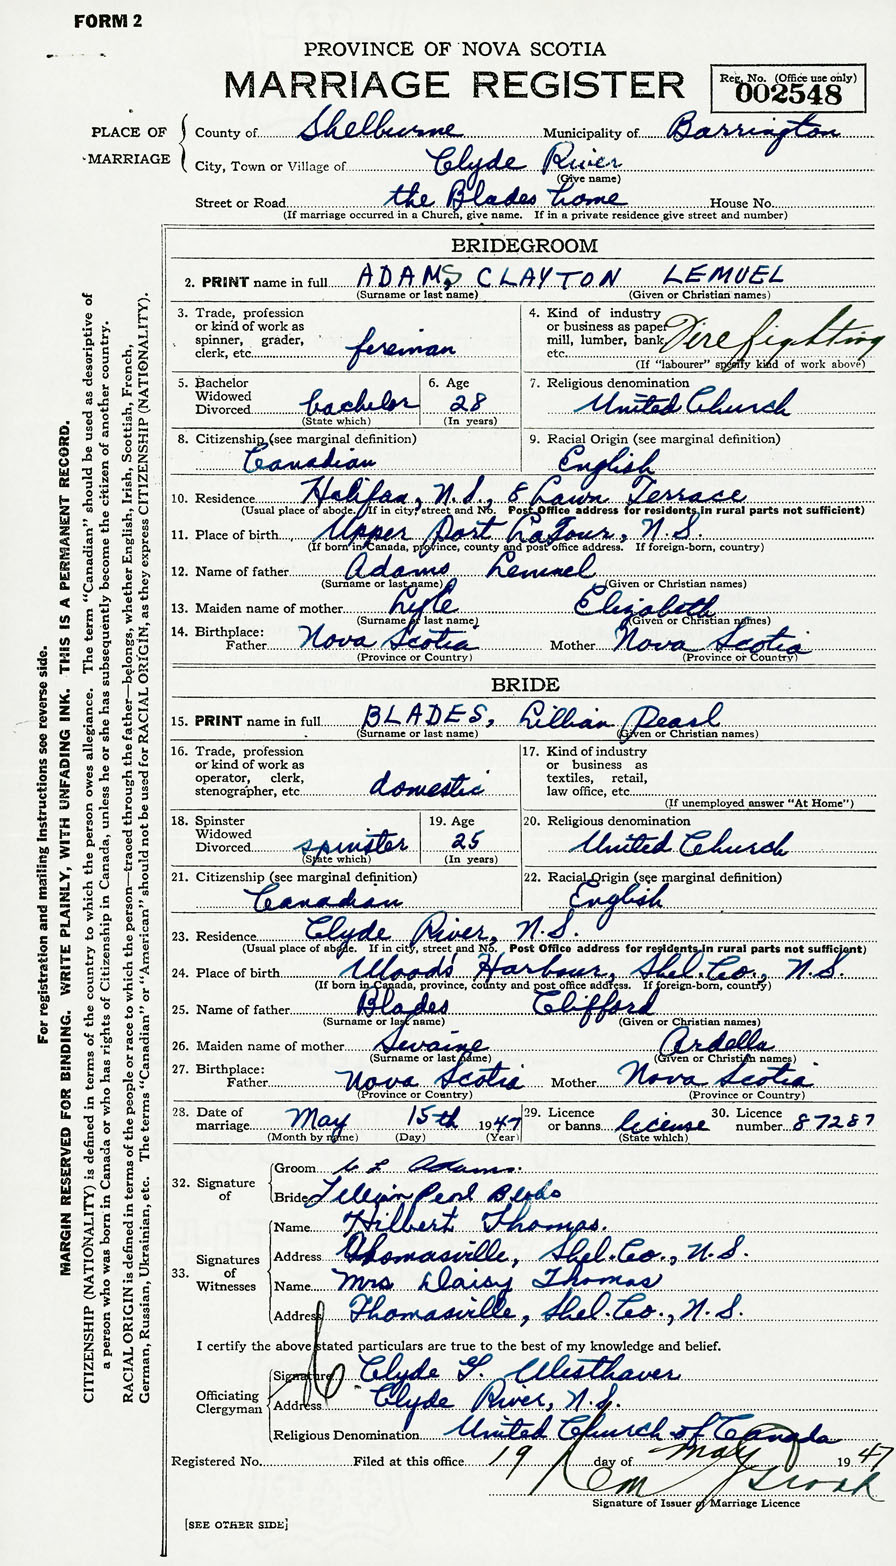 FORM 2
PROVINCE OF NOVA SCOTIA
MARRIAGE REGISTER
Reg. No. (Office use only)
002548
PLACE OF MARRIAGE
County of Shelburne Municipality of Barrington
City, Town or Village of Clyde River
(Give name)
Street or Road the Blades home House No.
(If marriage occurred in a Church, give name. If in a private residence give street and number)
BRIDEGROOM
2. PRINT name in full ADAMS CLAYTON LEMUEL
(Surname or last name) (Given or Christian names)
3. Trade, profession or kind of work as spinner, grader, clerk, etc. fireman
4. Kind of industry or business as paper mill, lumber, bank, etc. Fire fighting
(If "labourer" specify kind of work above)
5. Bachelor Widowed Divorced bachelor
(State which)
6. Age 28
(In years)
7. Religious denomination United Church
8. Citizenship (see marginal definition) Canadian
9. Racial Origin (see marginal definition) English
10. Residence Halifax, N.S., 8 Lawn Terrace
(Usual place of abode. If in city, street and No. Post Office address for residents in rural parts not sufficient)
11. Place of birth Upper Port LaTour, N.S.
(If born in Canada, province, county and post office address. If foreign-born, country)
12. Name of father Adams Lemuel
(Surname or last name) (Given or Christian names)
13. Maiden name of mother Lyle Elizabeth
(Surname or last name) (Given or Christian names)
14. Birthplace: Father Nova Scotia Mother Nova Scotia
(Province or Country) (Province or Country)
BRIDE
15. PRINT name in full BLADES, Lillian Pearl
(Surname or last name) (Given or Christian names)
16. Trade, profession or kind of work as operator, clerk, stenographer, etc. domestic
17. Kind of industry or business as textiles, retail, law office, etc.
(If unemployed answer "At Home")
18. Spinster Widowed Divorced spinster
(State which)
19. Age 25
(In years)
20. Religious denomination United Church
21. Citizenship (see marginal definition) Canadian
22. Racial Origin (see marginal definition) English
23. Residence Clyde River, N.S.
(Usual place of abode. If in city, street and No. Post Office address for residents in rural parts not sufficient)
24. Place of birth Woods Harbour, Shel. Co., N.S.
(If born in Canada, province, county and post office address. If foreign-born, country)
25. Name of father Blades Clifford
(Surname or last name) (Given or Christian names)
26. Maiden name of mother Swaine Ardella
(Surname or last name) (Given or Christian names)
27. Birthplace: Father Nova Scotia Mother Nova Scotia
(Province or Country) (Province or Country)
28. Date of marriage May 15th 1947
(Month by name) (Day) (Year)
29. Licence or banns license
(State which)
30. Licence number 87287
32. Signature of
Groom C L Adams.
Bride Lillian Pearl Blades
33. Signatures of Witnesses
Name Hilbert Thomas.
Address Thomasville, Shel. Co., N.S.
Name Mrs Daisy Thomas
Address Thomasville, Shel. Co., N.S.
I certify the above stated particulars are true to the best of my knowledge and belief.
Officiating Clergyman
Signature Clyde F. Westhaver
Address Clyde River, N.S.
Religious Denomination United Church of Canada
Registered No. Filed at this office 19 day of May 1947
Signature of Issuer of Marriage Licence
[SEE OTHER SIDE]
For registration and mailing instructions see reverse side.
MARGIN RESERVED FOR BINDING. WRITE PLAINLY, WITH UNFADING INK. THIS IS A PERMANENT RECORD.
CITIZENSHIP (NATIONALITY) is defined in terms of the country to which the person owes allegiance. The term "Canadian" should be used as descriptive of
a person who was born in Canada or who has rights of Citizenship in Canada, unless he or she has subsequently become the citizen of another country.
RACIAL ORIGIN is defined in terms of the people or race to which the person—traced through the father—belongs, whether English, Irish, Scottish, French,
German, Russian, Ukrainian, etc. The terms "Canadian" or "American" should not be used for RACIAL ORIGIN, as they express CITIZENSHIP (NATIONALITY).